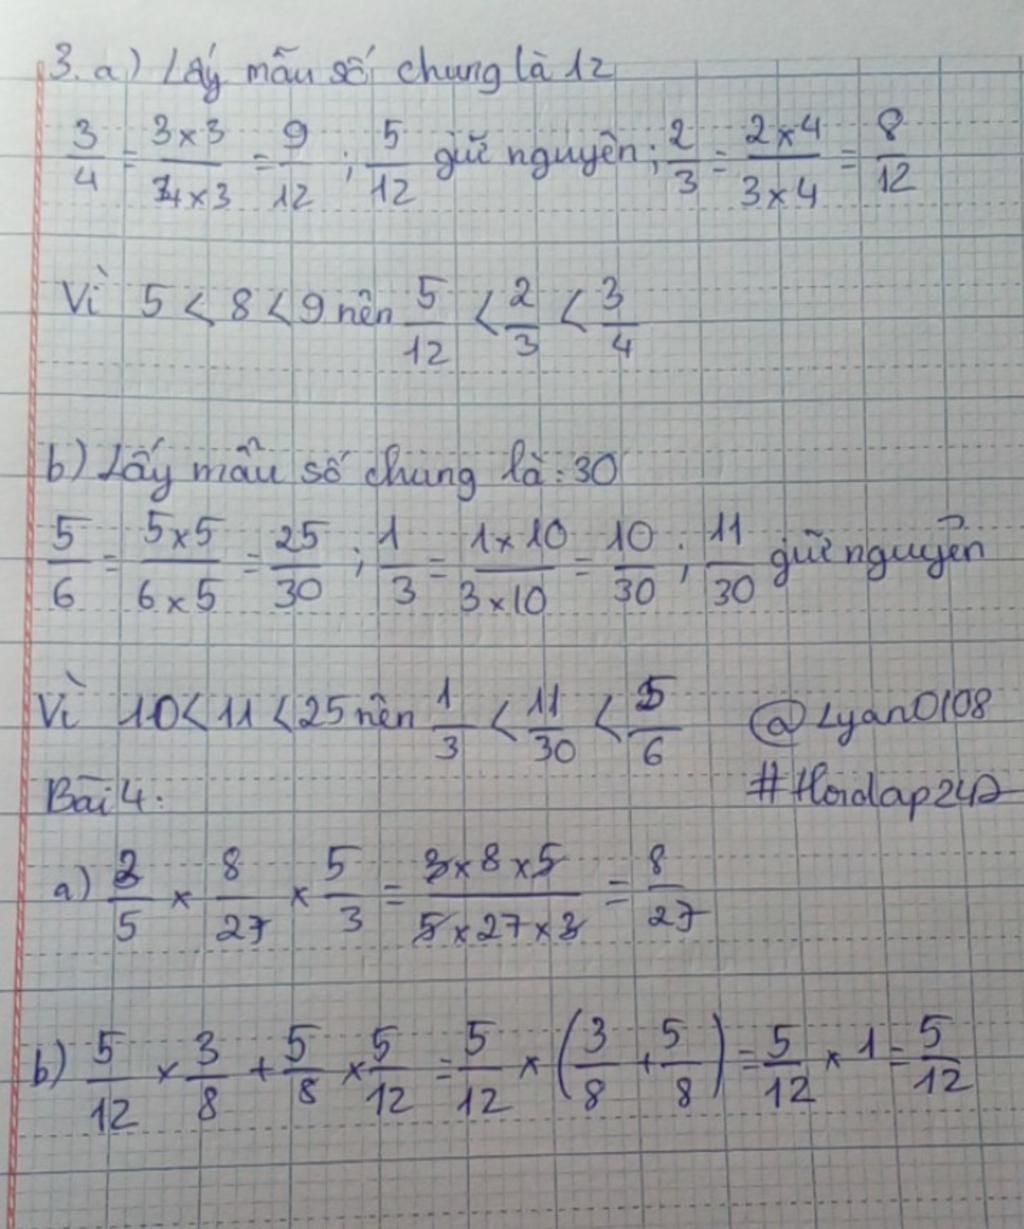 3. a) Lấy mẫu số chung là 12
3/4 = 3 x 3 / 4 x 3 = 9/12 ; 5/12 giữ nguyên ; 2/3 = 2 x 4 / 3 x 4 = 8/12
Vì 5 < 8 < 9 nên 5/12 < 2/3 < 3/4
b) Lấy mẫu số chung là : 30
5/6 = 5 x 5 / 6 x 5 = 25/30 ; 1/3 = 1 x 10 / 3 x 10 = 10/30 ; 11/30 giữ nguyên
Vì 10 < 11 < 25 nên 1/3 < 11/30 < 5/6 @Lyan0108
Bài 4: #Hoidap247
a) 3/5 x 8/27 x 5/3 = 3 x 8 x 5 / 5 x 27 x 3 = 8/27
b) 5/12 x 3/8 + 5/8 x 5/12 = 5/12 x (3/8 + 5/8) = 5/12 x 1 = 5/12